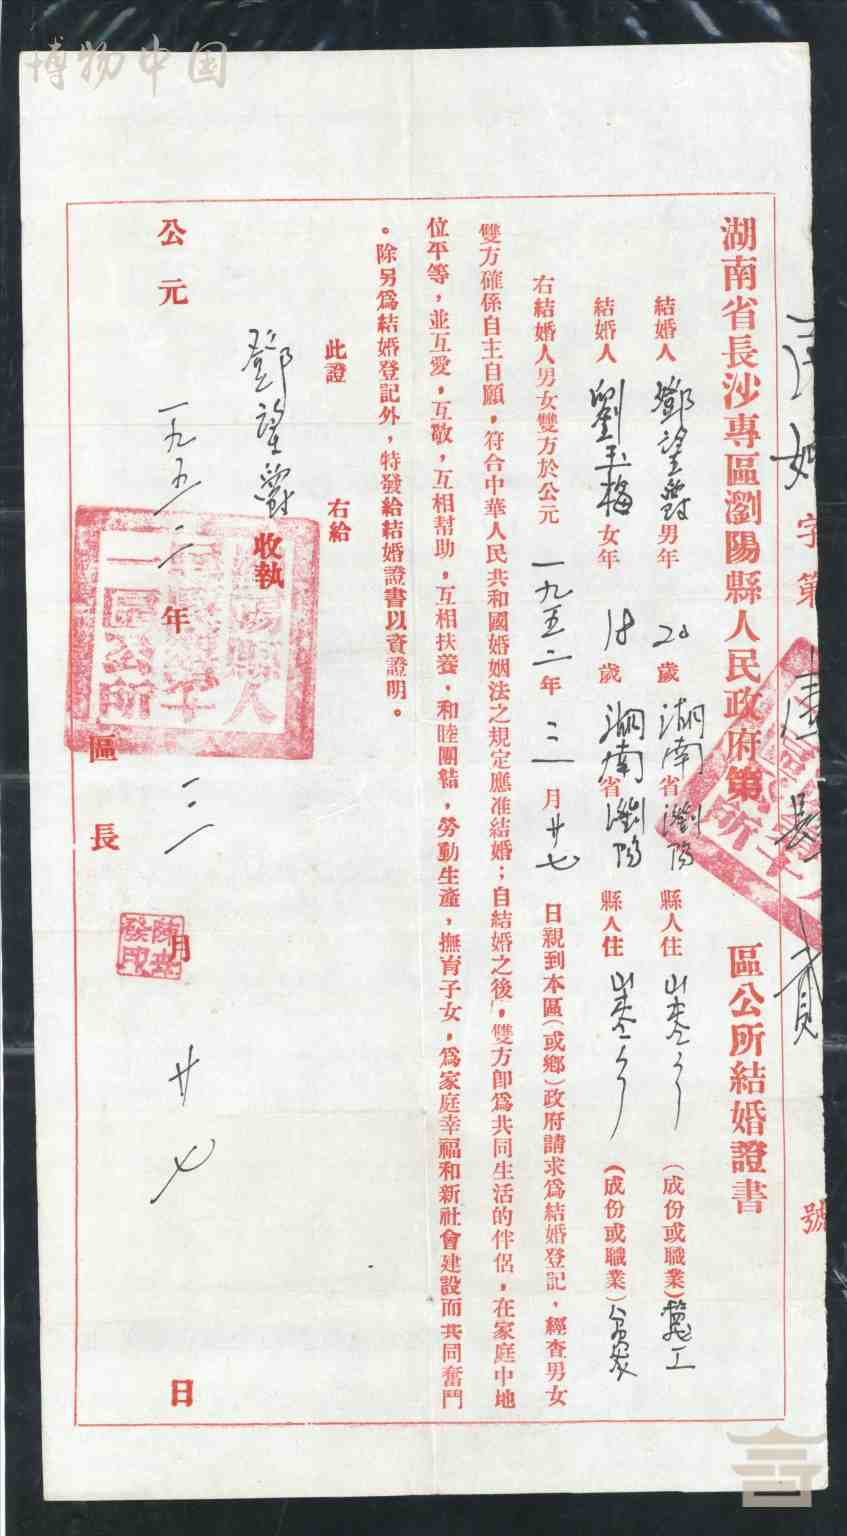 博物中国
字第
號
湖南省長沙專區瀏陽縣人民政府第 區公所結婚證書
結婚人 鄧望 男年 20 歲 湖南省瀏陽縣人住 (成份或職業) 工
結婚人 劉玉梅 女年 18 歲 湖南省瀏陽縣人住 (成份或職業)
右結婚人男女雙方於公元 一九五二 年 三 月 廿七 日親到本區(或鄉)政府請求爲結婚登記，經查男女
雙方確係自主自願，符合中華人民共和國婚姻法之規定應准結婚；自結婚之後，雙方卽爲共同生活的伴侶，在家庭中地
位平等，並互愛，互敬，互相幫助，互相扶養，和睦團結，勞動生產，撫育子女，爲家庭幸福和新社會建設而共同奮鬥
。除另爲結婚登記外，特發給結婚證書以資證明。
此證 右給
鄧望 收執
公元 一九五二 年 三 月 廿七 日
區長